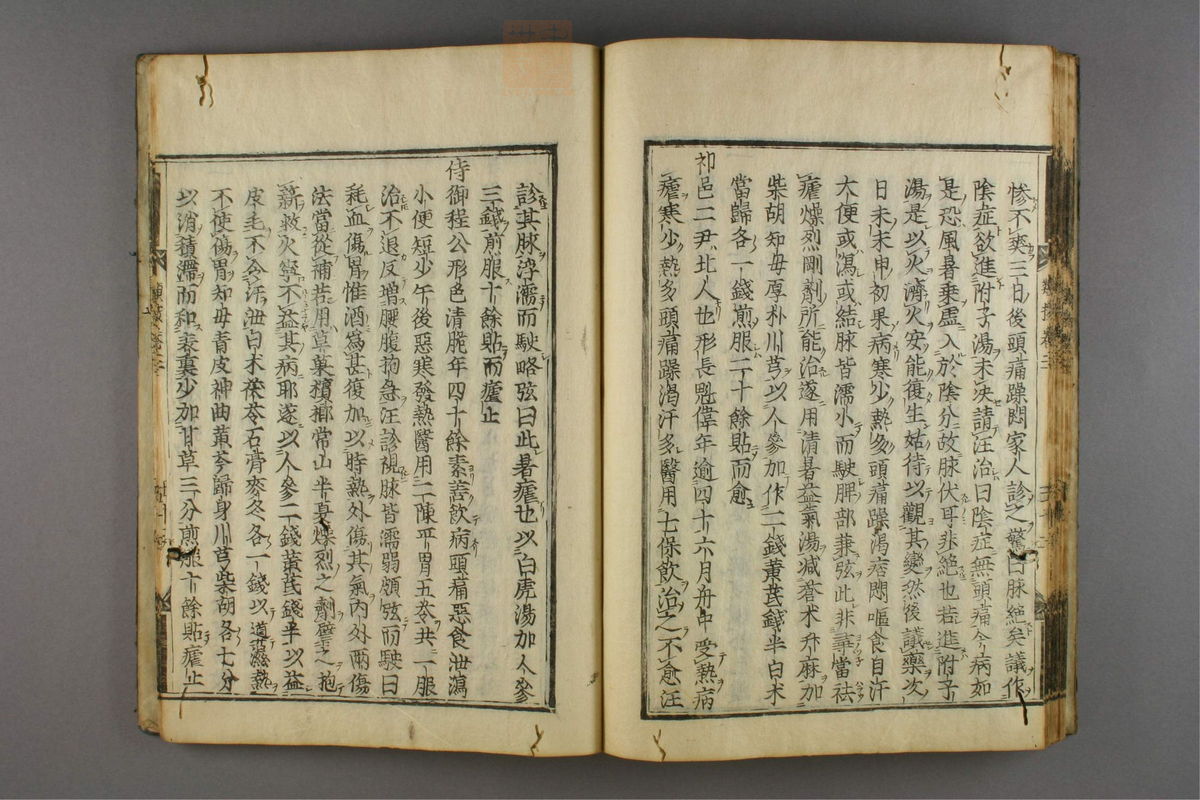 惨不爽三日後頭痛躁悶家人診之驚曰脉絶矣議作
陰症欲進附子湯未決請汪治曰陰症無頭痛今病如
是恐風暑乗虛入於陰分故脉伏耳非絶也若進附子
湯是以火濟火安能復生姑待以觀其變然後議藥次
日未末申初果病寒少熱多頭痛躁渴痞悶嘔食自汗
大便或瀉或結脉皆濡小而駛脾部兼弦此非事當祛
瘧燥烈剛劑所能治遂用清暑益氣湯減蒼术升麻加
柴胡知母厚朴川芎以人參加作二錢黄芪錢半白术
當歸各一錢煎服二十餘貼而愈
祁邑二尹北人也形長魁偉年逾四十六月舟中受熱病
瘧寒少熱多頭痛躁渴汗多醫用七保飲治之不愈汪
診其脉浮濡而駛略弦曰此暑瘧也以白虎湯加人參
三錢煎服十餘貼而瘧止
侍御程公形色清脆年四十餘素善飲病頭痛惡食泄瀉
小便短少午後惡寒發熱醫用二陳平胃五苓共一服
治不退反増腰腹拘急汪診視脉皆濡弱頗弦而駛曰
耗血傷胃惟酒爲甚復加以時熱外傷其氣内外兩傷
法當從補若用草菓檳榔常山半夏燥烈之劑譬之抱
薪救火寧不益其病耶遂以人參二錢黄芪錢半以益
皮毛不令汗泄白术茯苓石膏麥冬各一錢以導滋熱
不使傷胃知母青皮神曲黄芩歸身川芎柴胡各七分
以消積滯而和表裏少加甘草三分煎服十餘貼瘧止